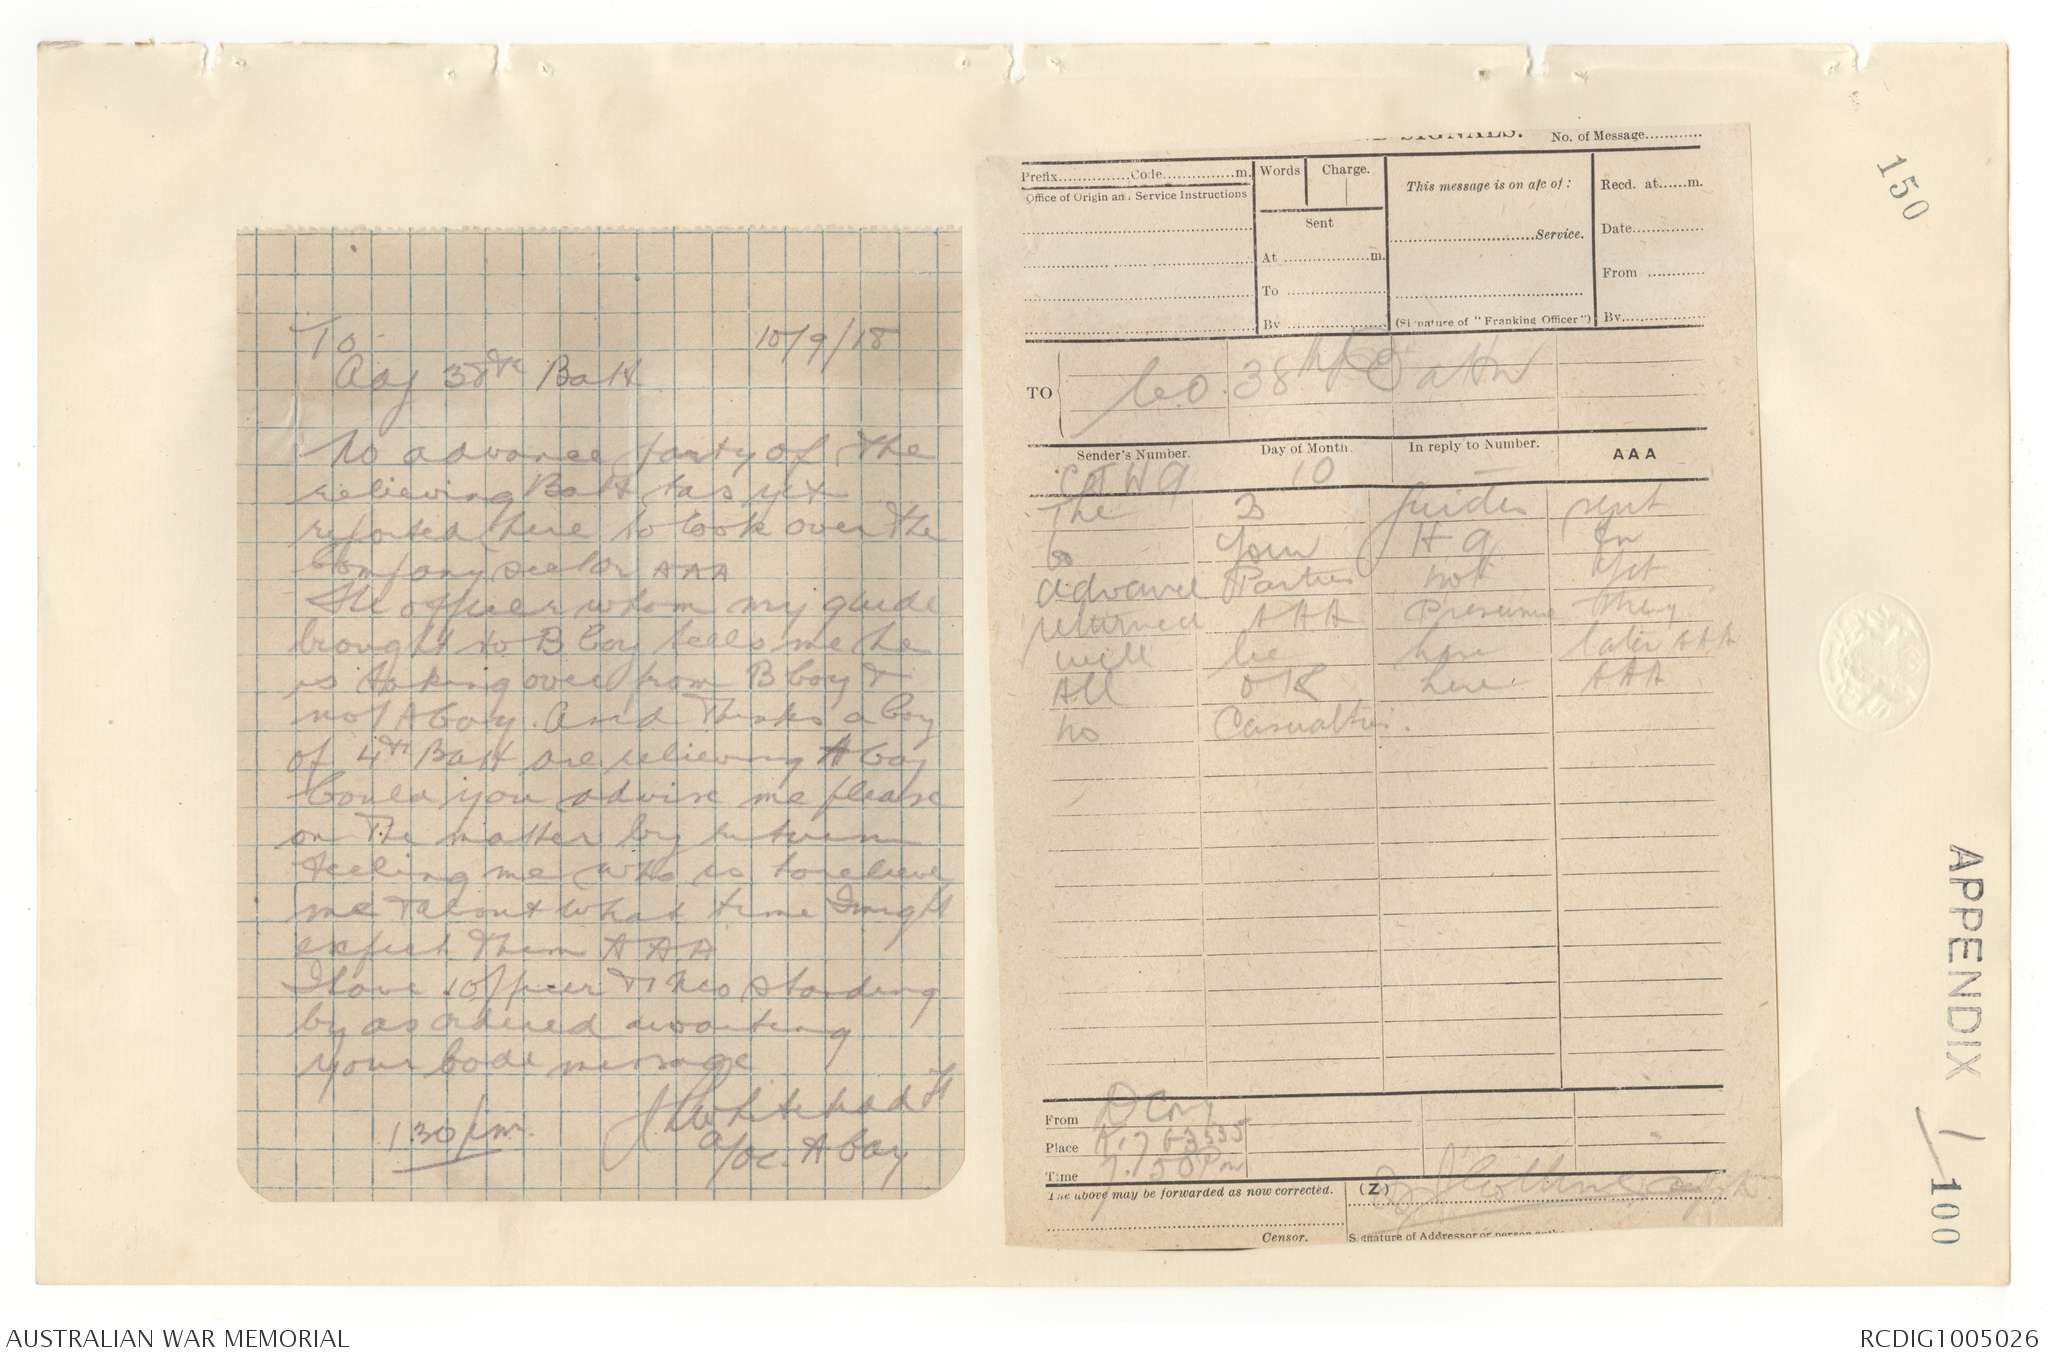 To 10/9/18
Adj 38th Batt
No advance party of the
relieving Batt has yet
reported here to look over the
Company sector AAA
The officer whom my guide
brought to B Coy tells me he
is taking over from B Coy &
not A Coy. And Thinks a Coy
of 4th Batt are relieving A Coy
Could you advise me please
on The matter by return
telling me who is to relieve
me & about what time I might
expect Them AAA
I have 1 Officer & 1 NCO standing
by as ordered awaiting
your Code message
Whitehead Lt
1.30 pm.
a/oc. A Coy
SIGNALS. No. of Message
Prefix Code m. Words Charge. This message is on a/c of: Recd. at m.
Office of Origin and Service Instructions
Sent Service. Date
At m. From
To
By (Signature of "Franking Officer") By
TO C.O. 38th Battn
Sender's Number. Day of Month. In reply to Number. AAA
10 —
The 3 guides sent
to your HQ for
advance Parties not yet
returned AAA Presume they
will be here later AAA
All OK here AAA
no Casualties.
From D Coy
Place
Time 7.50 Pm
The above may be forwarded as now corrected. (Z)
Censor. Signature of Addressor or person
150
APPENDIX 1/100
AUSTRALIAN WAR MEMORIAL RCDIG1005026